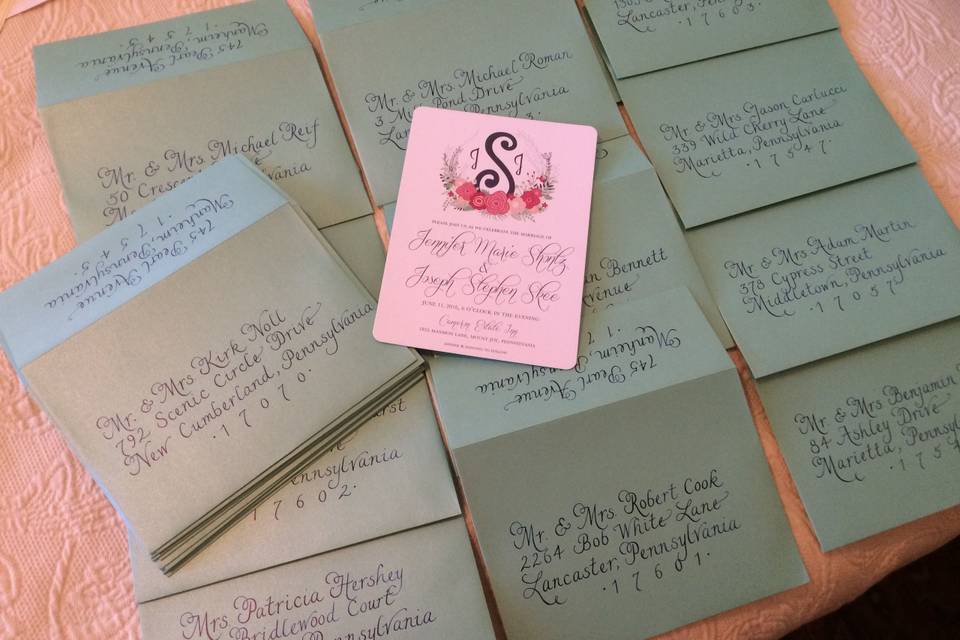 745
Pearl Avenue
Manheim, Pennsylvania
1 7 5 4 5
Mr. & Mrs. Michael Reif
50
Mr. & Mrs. Michael Roman
3 Pond Drive
Pennsylvania
Lancaster, Pennsylvania
· 1 7 6 0 3 ·
Mr. & Mrs. Jason Carlucci
339 Wild Cherry Lane
Marietta, Pennsylvania
· 1 7 5 4 7 ·
J S J
PLEASE JOIN US AS WE CELEBRATE THE MARRIAGE OF
Jennifer Marie
&
Joseph Stephen
JUNE 11, 2016, 6 O'CLOCK IN THE EVENING
Cameron Estate Inn
1855 MANSION LANE, MOUNT JOY, PENNSYLVANIA
DINNER & DANCING TO FOLLOW
Bennett
Avenue
Mr. & Mrs. Adam Martin
378 Cypress Street
Middletown, Pennsylvania
· 1 7 0 5 7 ·
745 Pearl Avenue
Manheim, Pennsylvania
· 1 7 5 4 5 ·
Mr. & Mrs. Kirk Noll
792 Scenic Circle Drive
New Cumberland, Pennsylvania
· 1 7 0 7 0 ·
745 Pearl Avenue
Manheim, Pennsylvania
· 1
Mr. & Mrs. Benjamin
84 Ashley Drive
Marietta,
· 1 7 5 4
Pennsylvania
1 7 6 0 2 ·
Mr. & Mrs. Robert Cook
2264 Bob White Lane
Lancaster, Pennsylvania
· 1 7 6 0 1 ·
Mrs. Patricia Hershey
Bridlewood Court
Pennsylvania